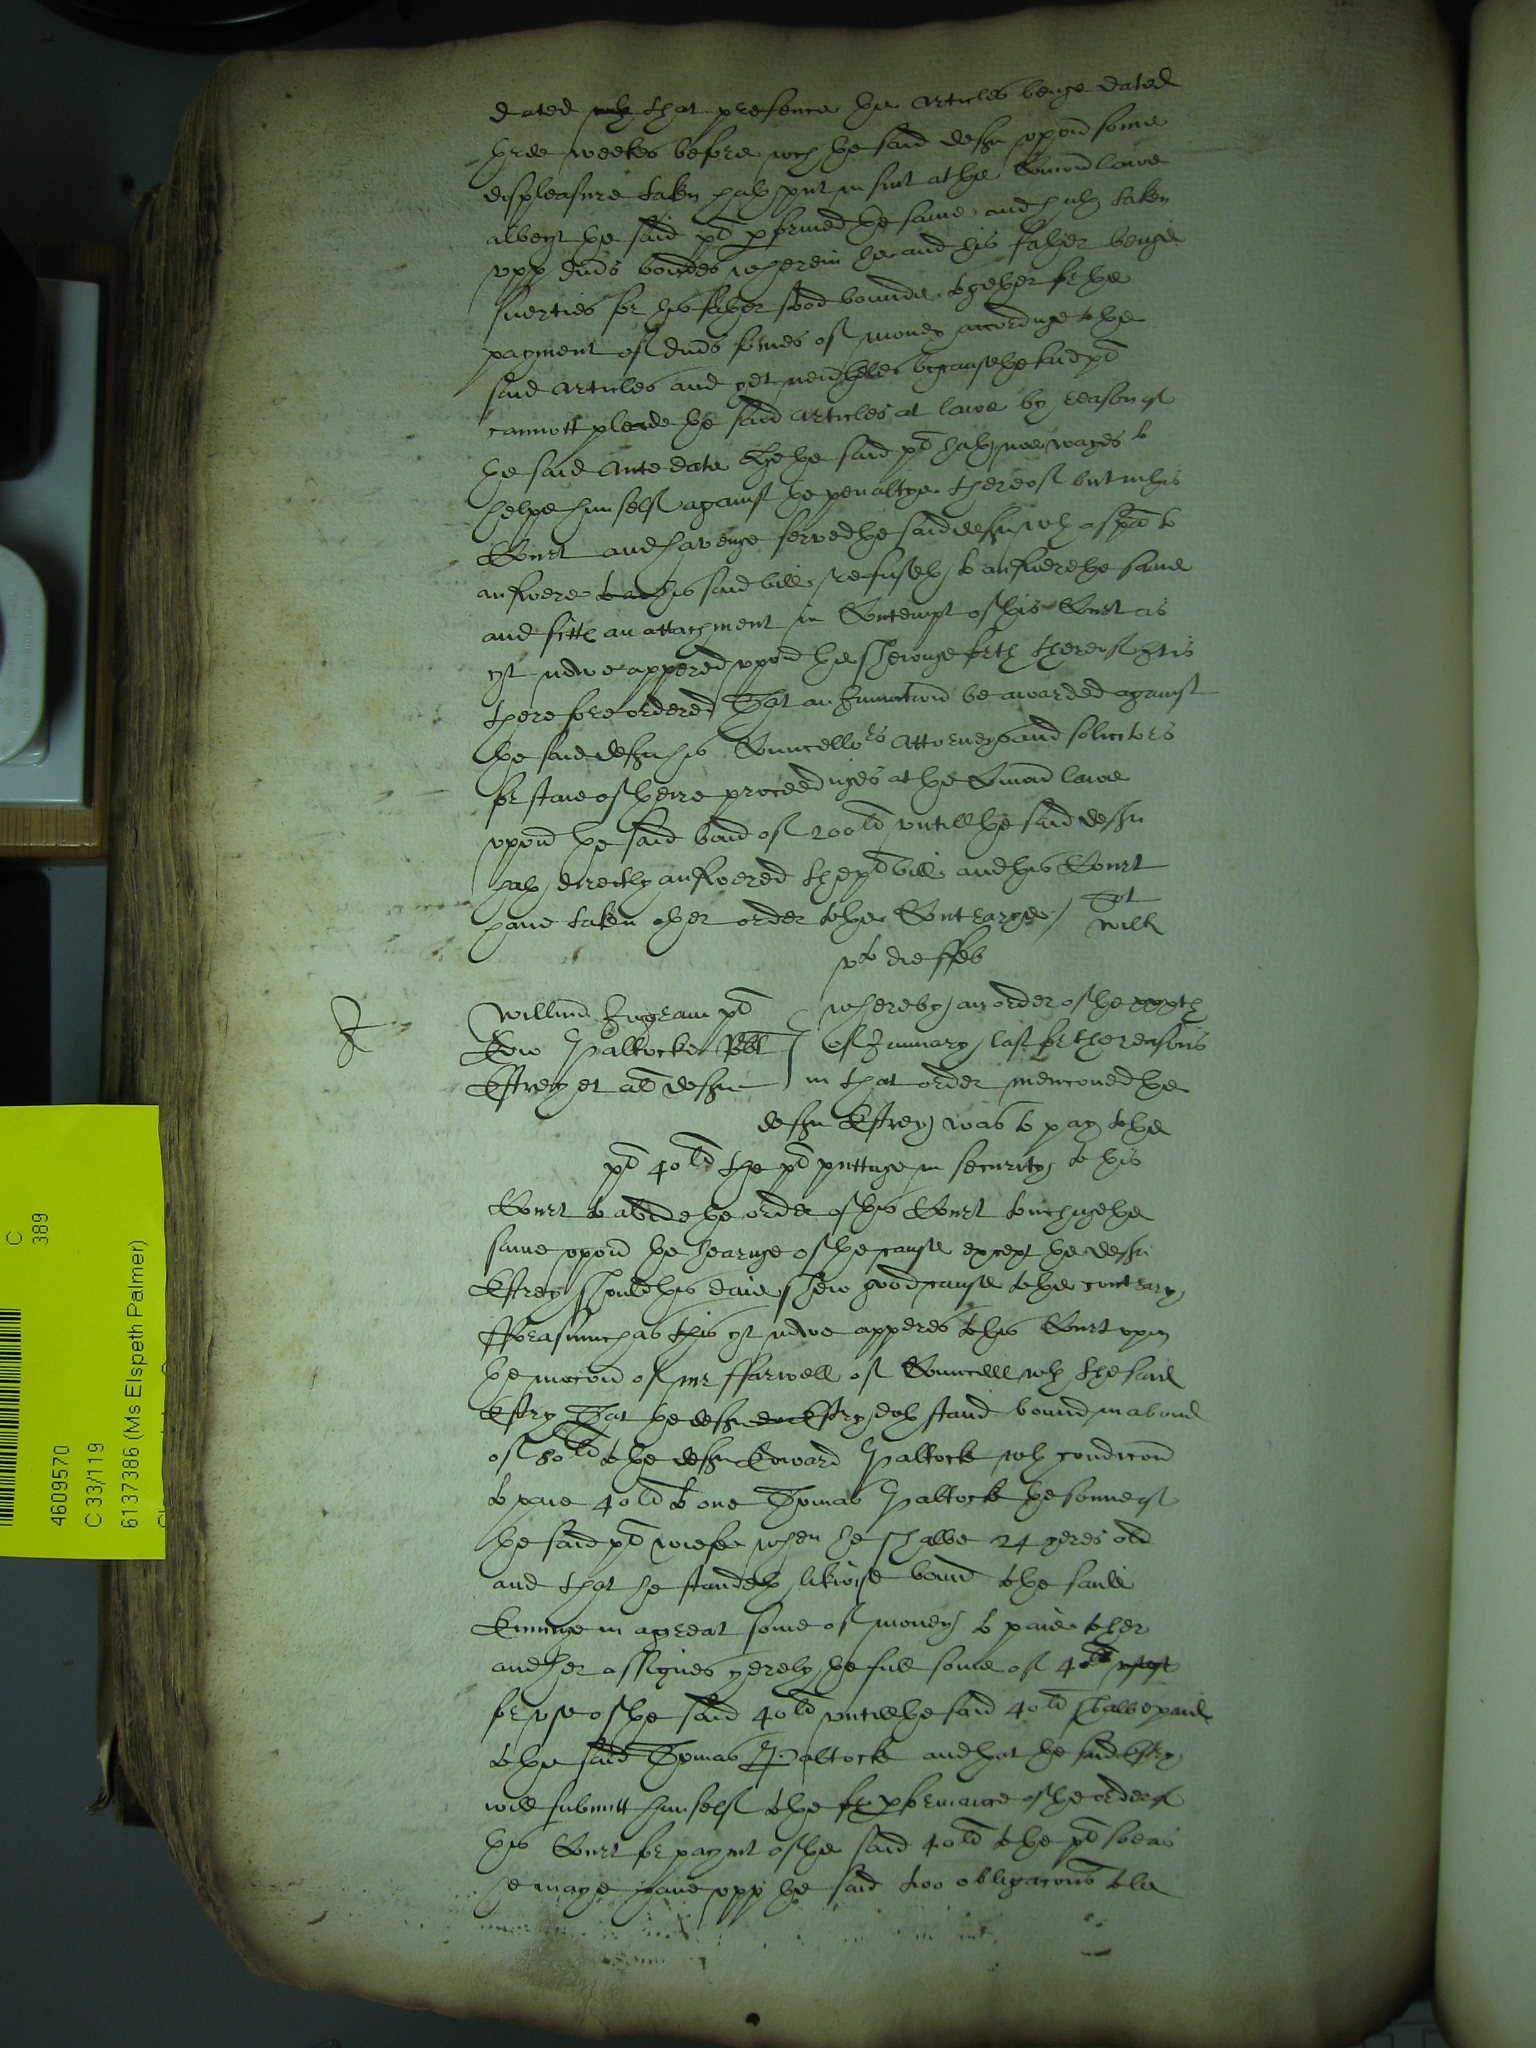 dated with that presence the articles beinge dated
three weekes before wch the said deft uppon some
displeasure taken hath put in sute at the Comon lawe
albeyt the said pl performed the same and hath taken
upp divers bondes wherein he and his father beinge
suerties for his father stood bounde together for the
payment of divers somes of money accordinge to the
said articles and yet because the said pl
cannott pleade the said articles at lawe by reason of
the said Antedate the said pl hath noe wayes to
helpe himself against the penaltye thereof but in this
Court and havenge served the said deft with a spa to
answere to this said bill refuseth to answere the same
and sitteth an attachment in Contempt of this Court as
yt nowe appered uppon the shewinge forth thereof It is
therefore ordered That an Iniunction be awarded against
the said deft his Councellors Attorneys and solicitors
for staie of theire proceedinges at the Comon lawe
uppon the said bond of 200ld untill the said deft
hath directly answered the pl bill and this Court
have taken other order to the Contrarye / Tot
Willm Ingram pl whereby an order of the xxxth
Edw Paltocke of January last for the reasons
Estrey et al deftes in that order mencioned the
deft Estrey was to pay to the
pl 40ld the pl puttinge in security to this
Court to abide the order of this Court touchinge the
same uppon the hearinge of the cause except the deft
Estrey should this daie shew good cause to the contrary
fforasmuch as this yt nowe apperes to this Court upon
the mocion of mr ffarwell of Councell with the said
Estry That the deft Estry doth stand bound in a bond
of 80ld to the deft Edward Paltock with condicion
to paie 40ld to one Thomas Paltock the sonne of
the said pl wiefe when he shalbe 24 yeres old
and that he standeth likwise bound to the said
in a great some of money to paie to her
and her assignes yerely the full some of 4ld
for use of the said 40ld untill the said 40ld shalbe paid
to the said Thomas Paltock and that the said Estry
will submitt himself to the performance of the order of
this Court for paymt of the said 40ld to the pl soe as
he maye have upp the said two obligacions to be
C
389
4609570
C 33/119
6137386 (Ms Elspeth Palmer)